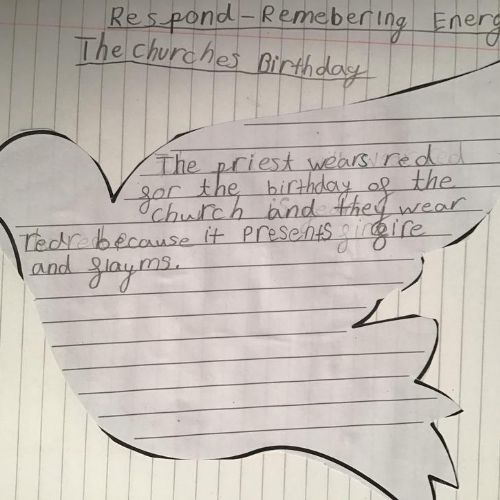 Respond - Remebering Energ
The churches Birthday
The priest wears red
for the birthday of the
church and they wear
red because it presents fire
and flayms.